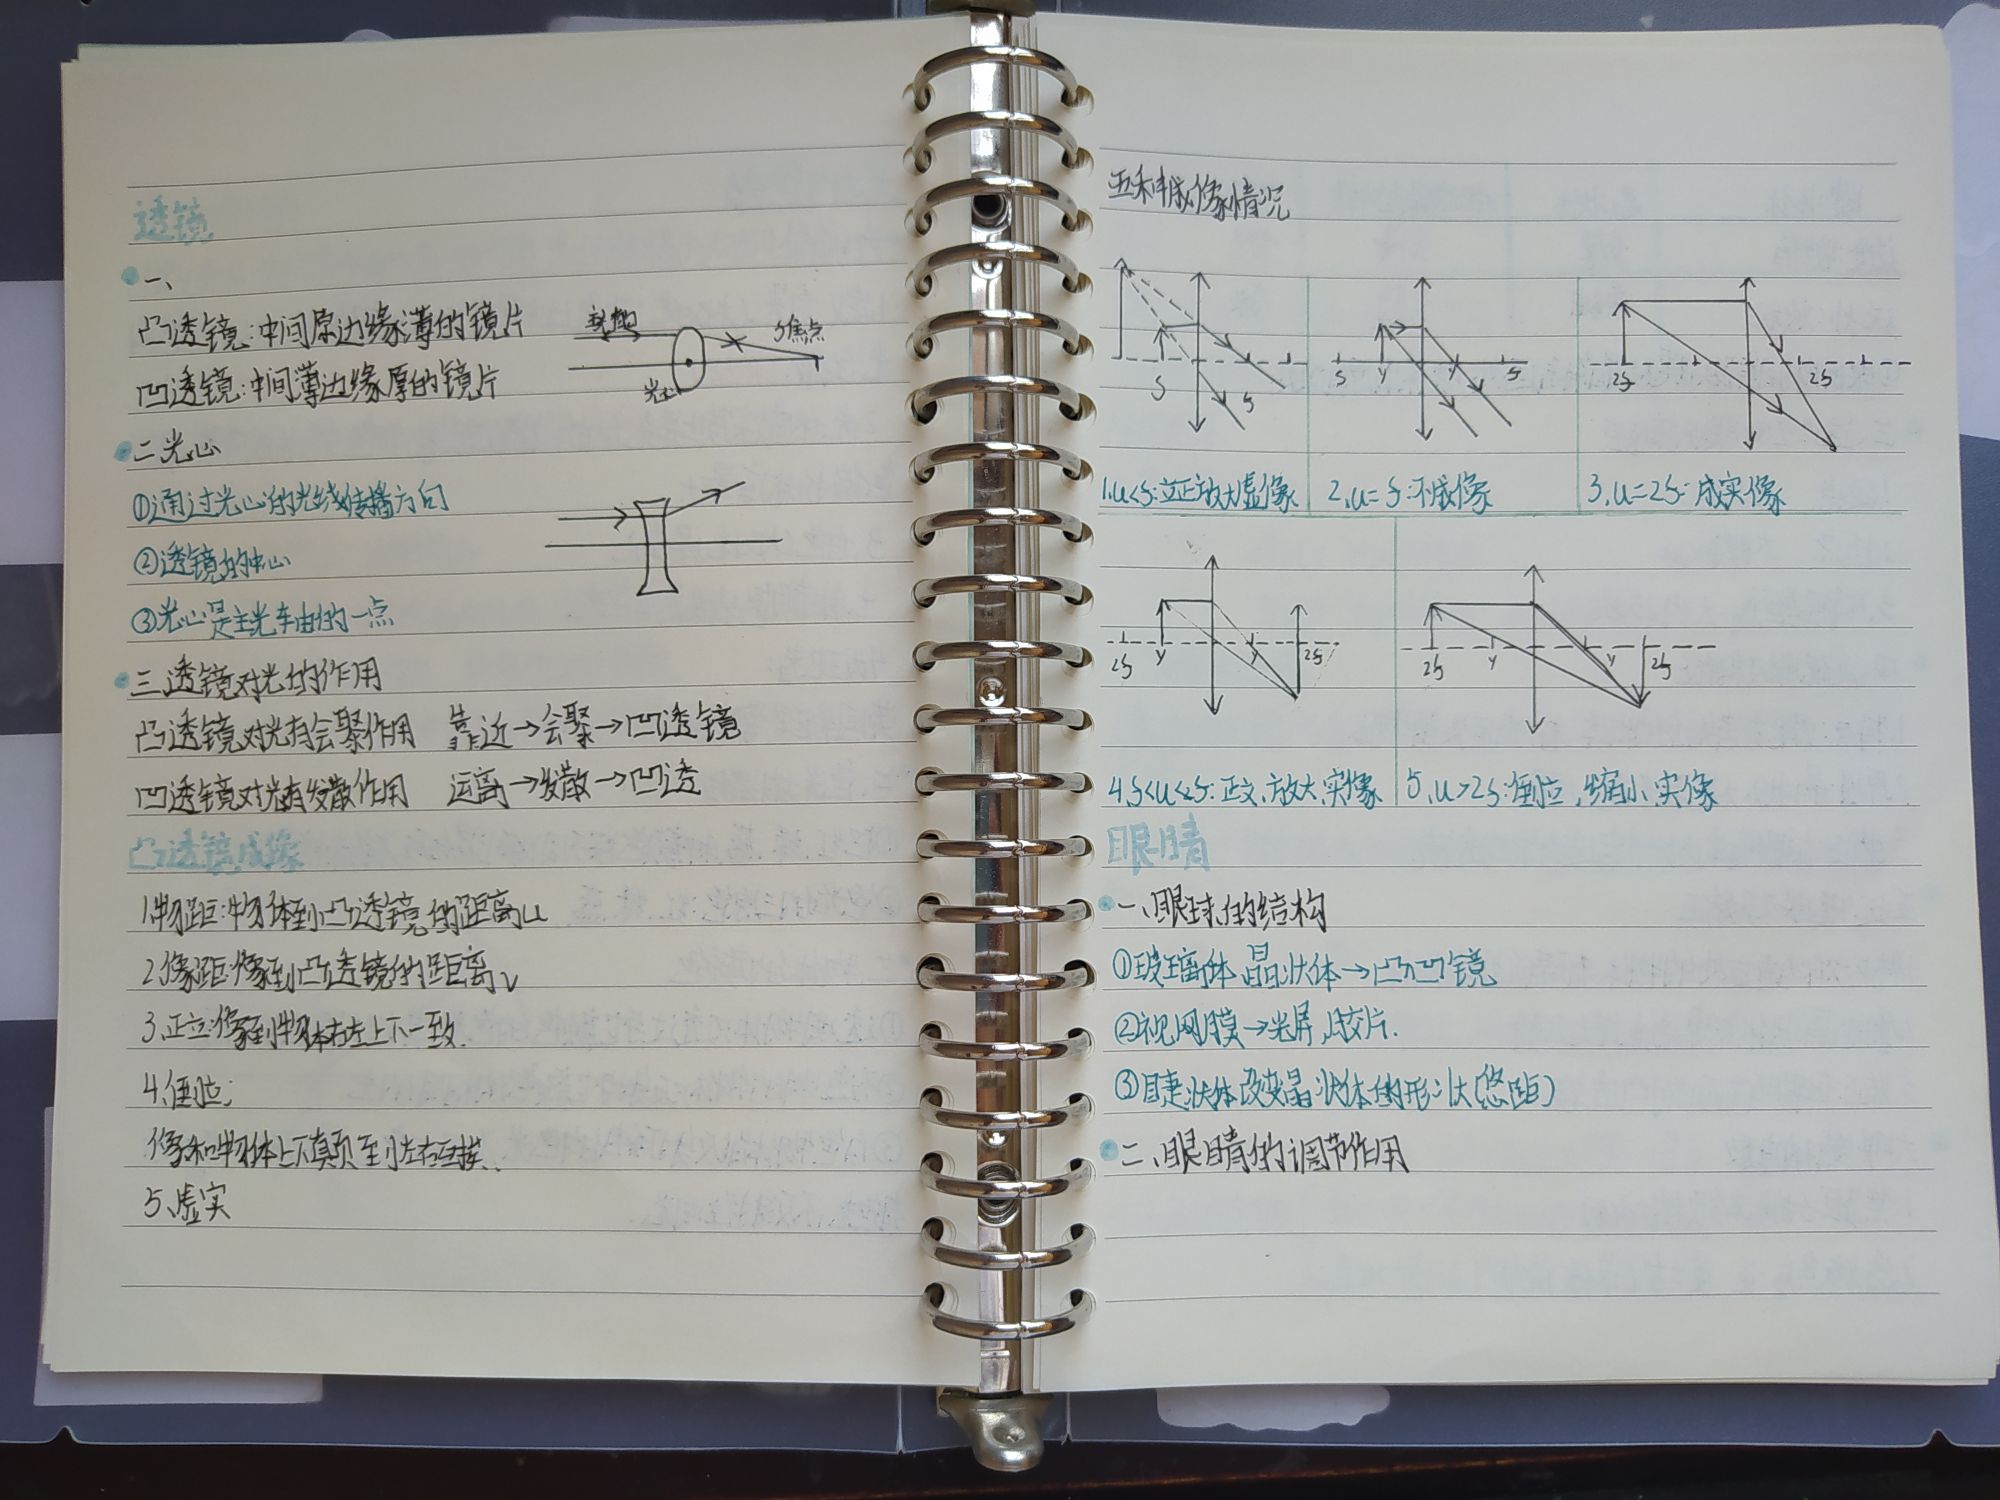 透镜
一、
凸透镜:中间厚边缘薄的镜片
凹透镜:中间薄边缘厚的镜片
焦点
光心
二光心
①通过光心的光线传播方向
②透镜的中心
③光心是主光车由的一点
三透镜对光的作用
凸透镜对光有会聚作用 靠近→会聚→凹透镜
凹透镜对光有发散作用 远离→发散→凹透
凸透镜成像
1.物距:物体到凸透镜的距离u
2.像距:像到凸透镜的距离v
3.正立:像到物体右左上下一致.
4.倒立:
像和物体上下真页到左右互换.
5、虚实
五种成像情况
f f
f f
2f 2f
1.u<f:立正放大虚像 2.u=f:不成像 3.u=2f:成实像
2f 2f
2f 2f
4.f<u<2f:正立、放大、实像 5.u>2f:倒立,缩小、实像
眼睛
一、眼球的结构
①玻璃体 晶状体→凸凹镜
②视网膜→光屏,胶片.
③睫状体改变晶状体的形状(悠距)
二、眼睛的调节作用